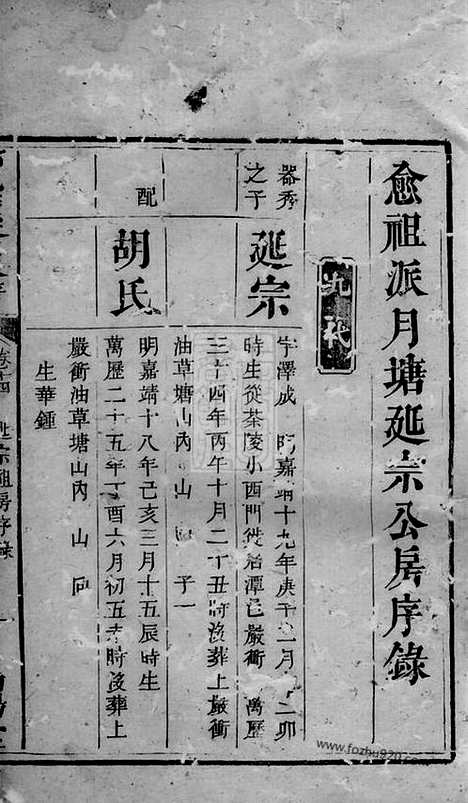 愈祖派月塘延宗公房序錄
器秀
之子
延宗
字澤成 明嘉靖十九年庚子 月 二卯
時生從茶陵小西門徙居潭邑嚴衝 萬歷
三十四年丙午十月二十丑時沒葬上嚴衝
油草塘山內 山 子一
配
胡氏
明嘉靖十八年己亥三月十五辰時生
萬歷二十五年丁酉六月初五 時後葬上
嚴衝油草塘山內 山 向
生華鍾
卷十四
宗祖房序錄
www.fozhu920.com